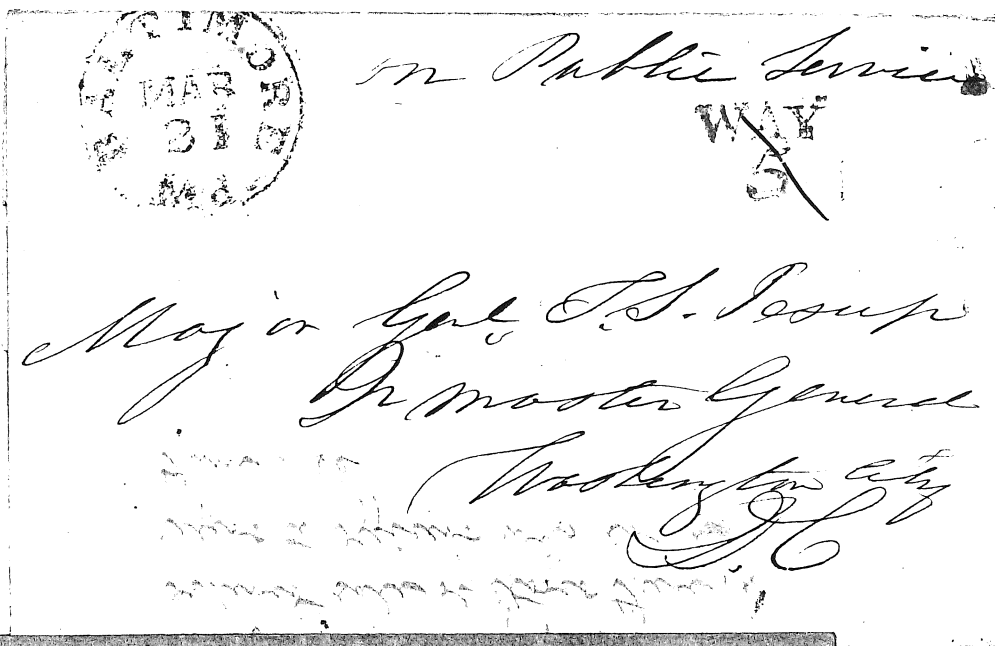 BALTIMORE Md.
MAR
31
on Public Service
WAY
5
Major Genl. T. S. Jesup
Qr master General
Washington city
D. C